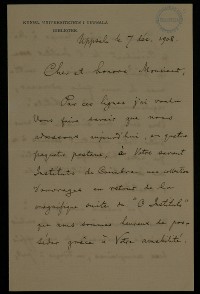 KUNGL. UNIVERSITETETS I UPSALA
BIBLIOTEK
Uppsala le 7 1908.
Cher et honoré Monsieur,
Par ces lignes j'ai voulu
Vous faire savoir que nous
adressons, aujourd'hui, en quatre
paquets postaux, à Votre savant
Instituto de Coimbra, une collection
d'ouvrages en retour de la
magnifique suite de "O Instituto"
que nous sommes heureux de pos-
séder grâce à Votre amabilité.